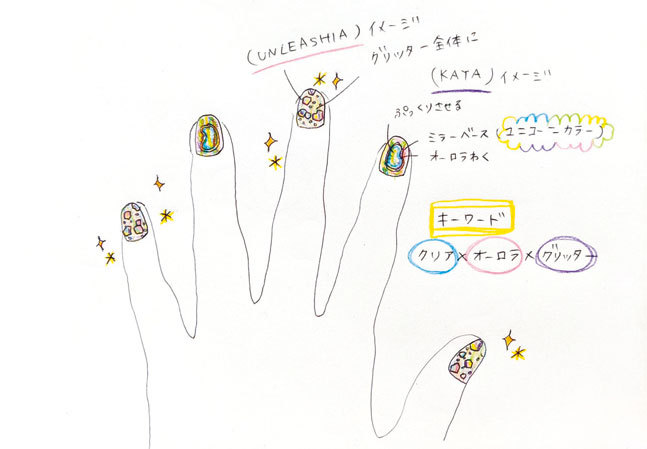 (UNLEASHIA)イメージ
グリッター全体に
(KATA)イメージ
ぷっくりさせる
ミラーベース(ユニコーンカラー)
オーロラわく
キーワード
クリア×オーロラ×グリッター